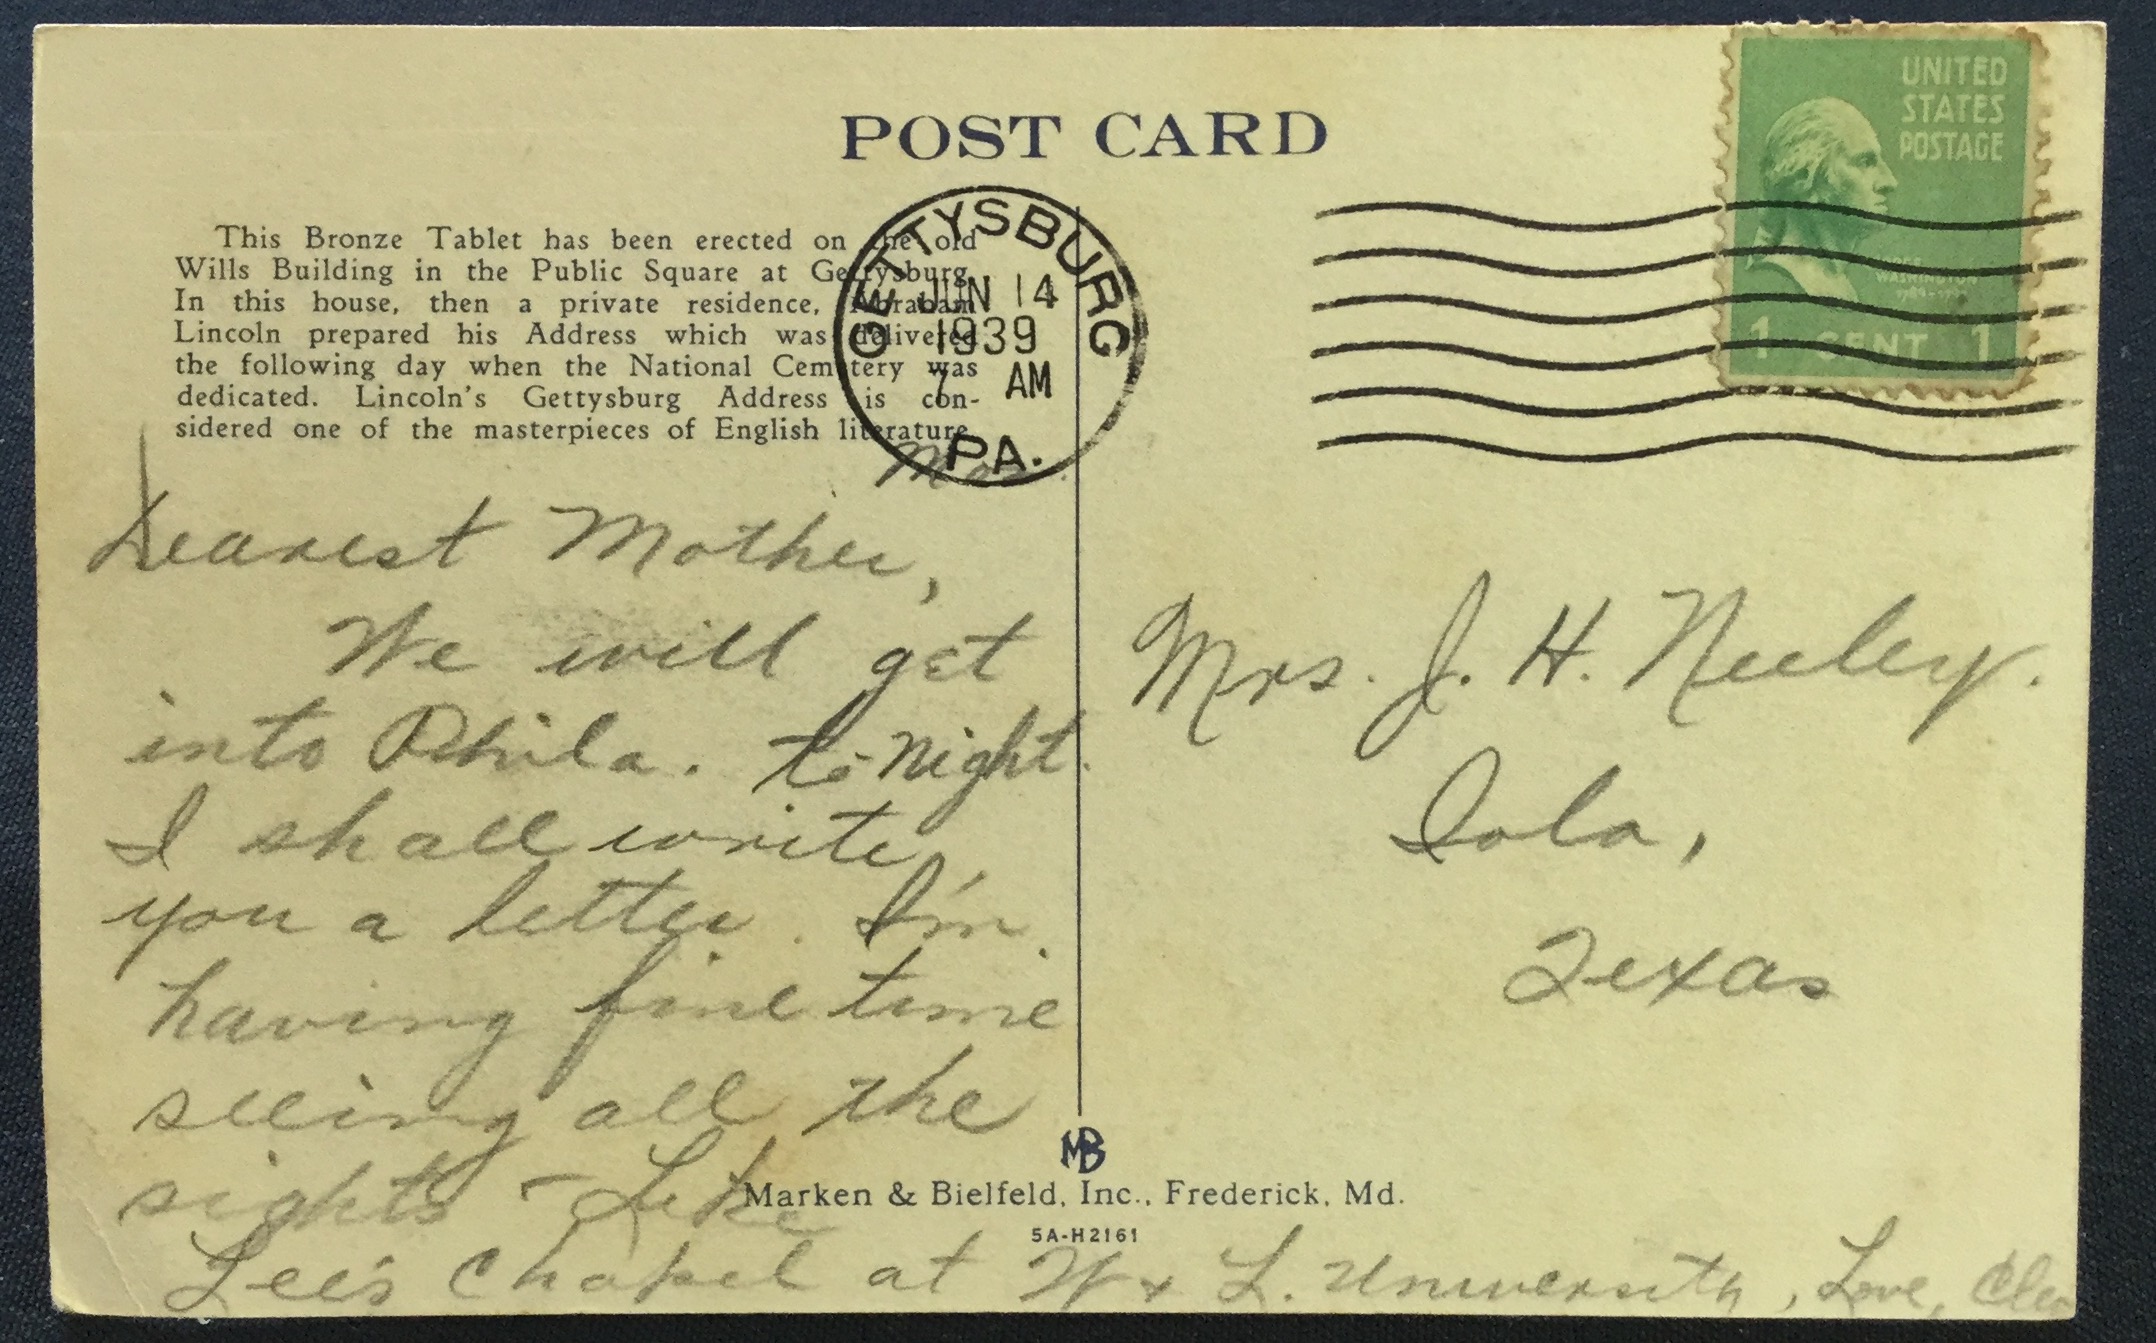 POST CARD
UNITED
STATES
POSTAGE
WASHINGTON
1 CENT 1
GETTYSBURG
JUN 14
1939
7 AM
PA.
This Bronze Tablet has been erected on the old
Wills Building in the Public Square at Gettysburg.
In this house, then a private residence, Abraham
Lincoln prepared his Address which was delivered
the following day when the National Cemetery was
dedicated. Lincoln's Gettysburg Address is con-
sidered one of the masterpieces of English literature.
Dearest Mother,
We will get
into Phila. to-night.
I shall write
you a letter. I'm
having fine time
seeing all the
sights - Like
Lee's Chapel at W & L. University, Love, Cleo
Mrs. J. H. Neeley.
Iola,
Texas
MB
Marken & Bielfeld, Inc., Frederick, Md.
5A-H2161